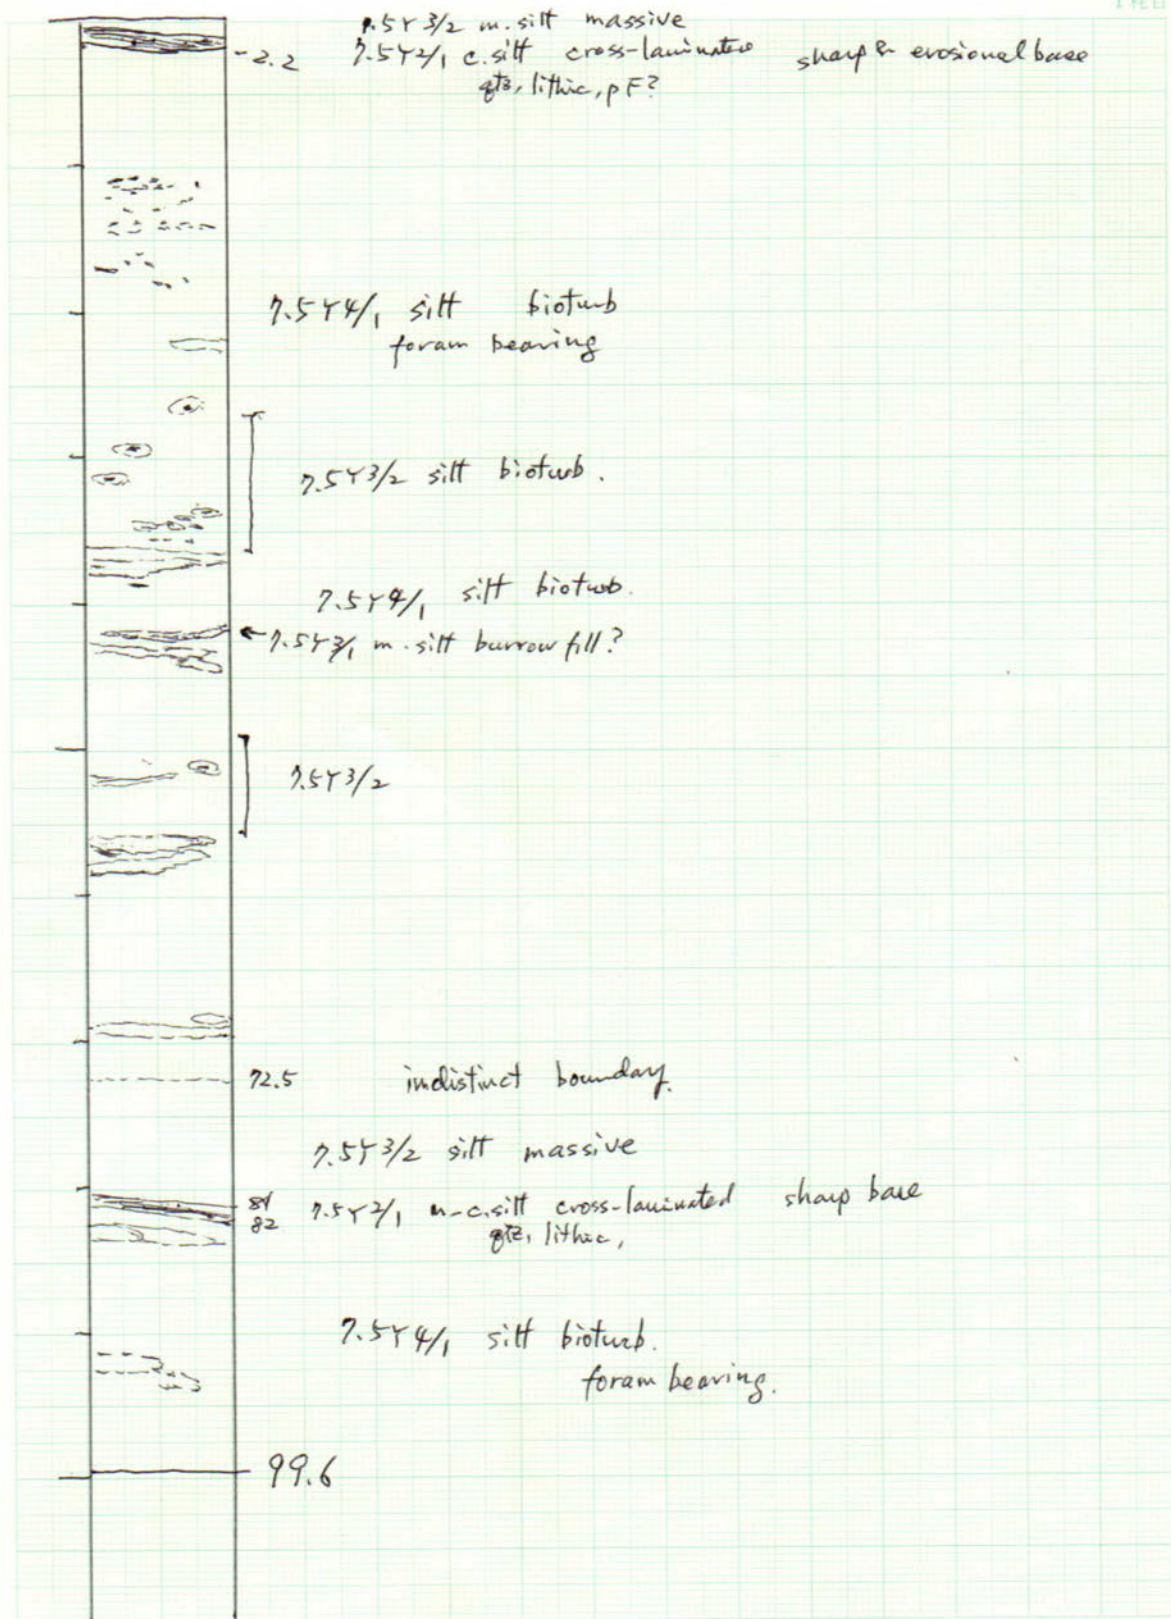 7.5Y 3/2 m. silt massive
-2.2 7.5Y2/1 c. silt cross-laminated sharp & erosional base
qtz, lithic, pF?
7.5Y4/1 silt bioturb
foram bearing
7.5Y3/2 silt bioturb.
7.5Y4/1 silt bioturb.
←7.5Y3/1 m. silt burrow fill?
7.5Y3/2
72.5 indistinct boundary.
7.5Y3/2 silt massive
81 7.5Y2/1 m-c. silt cross-laminated sharp base
82 qtz, lithic,
7.5Y4/1 silt bioturb.
foram bearing.
99.6